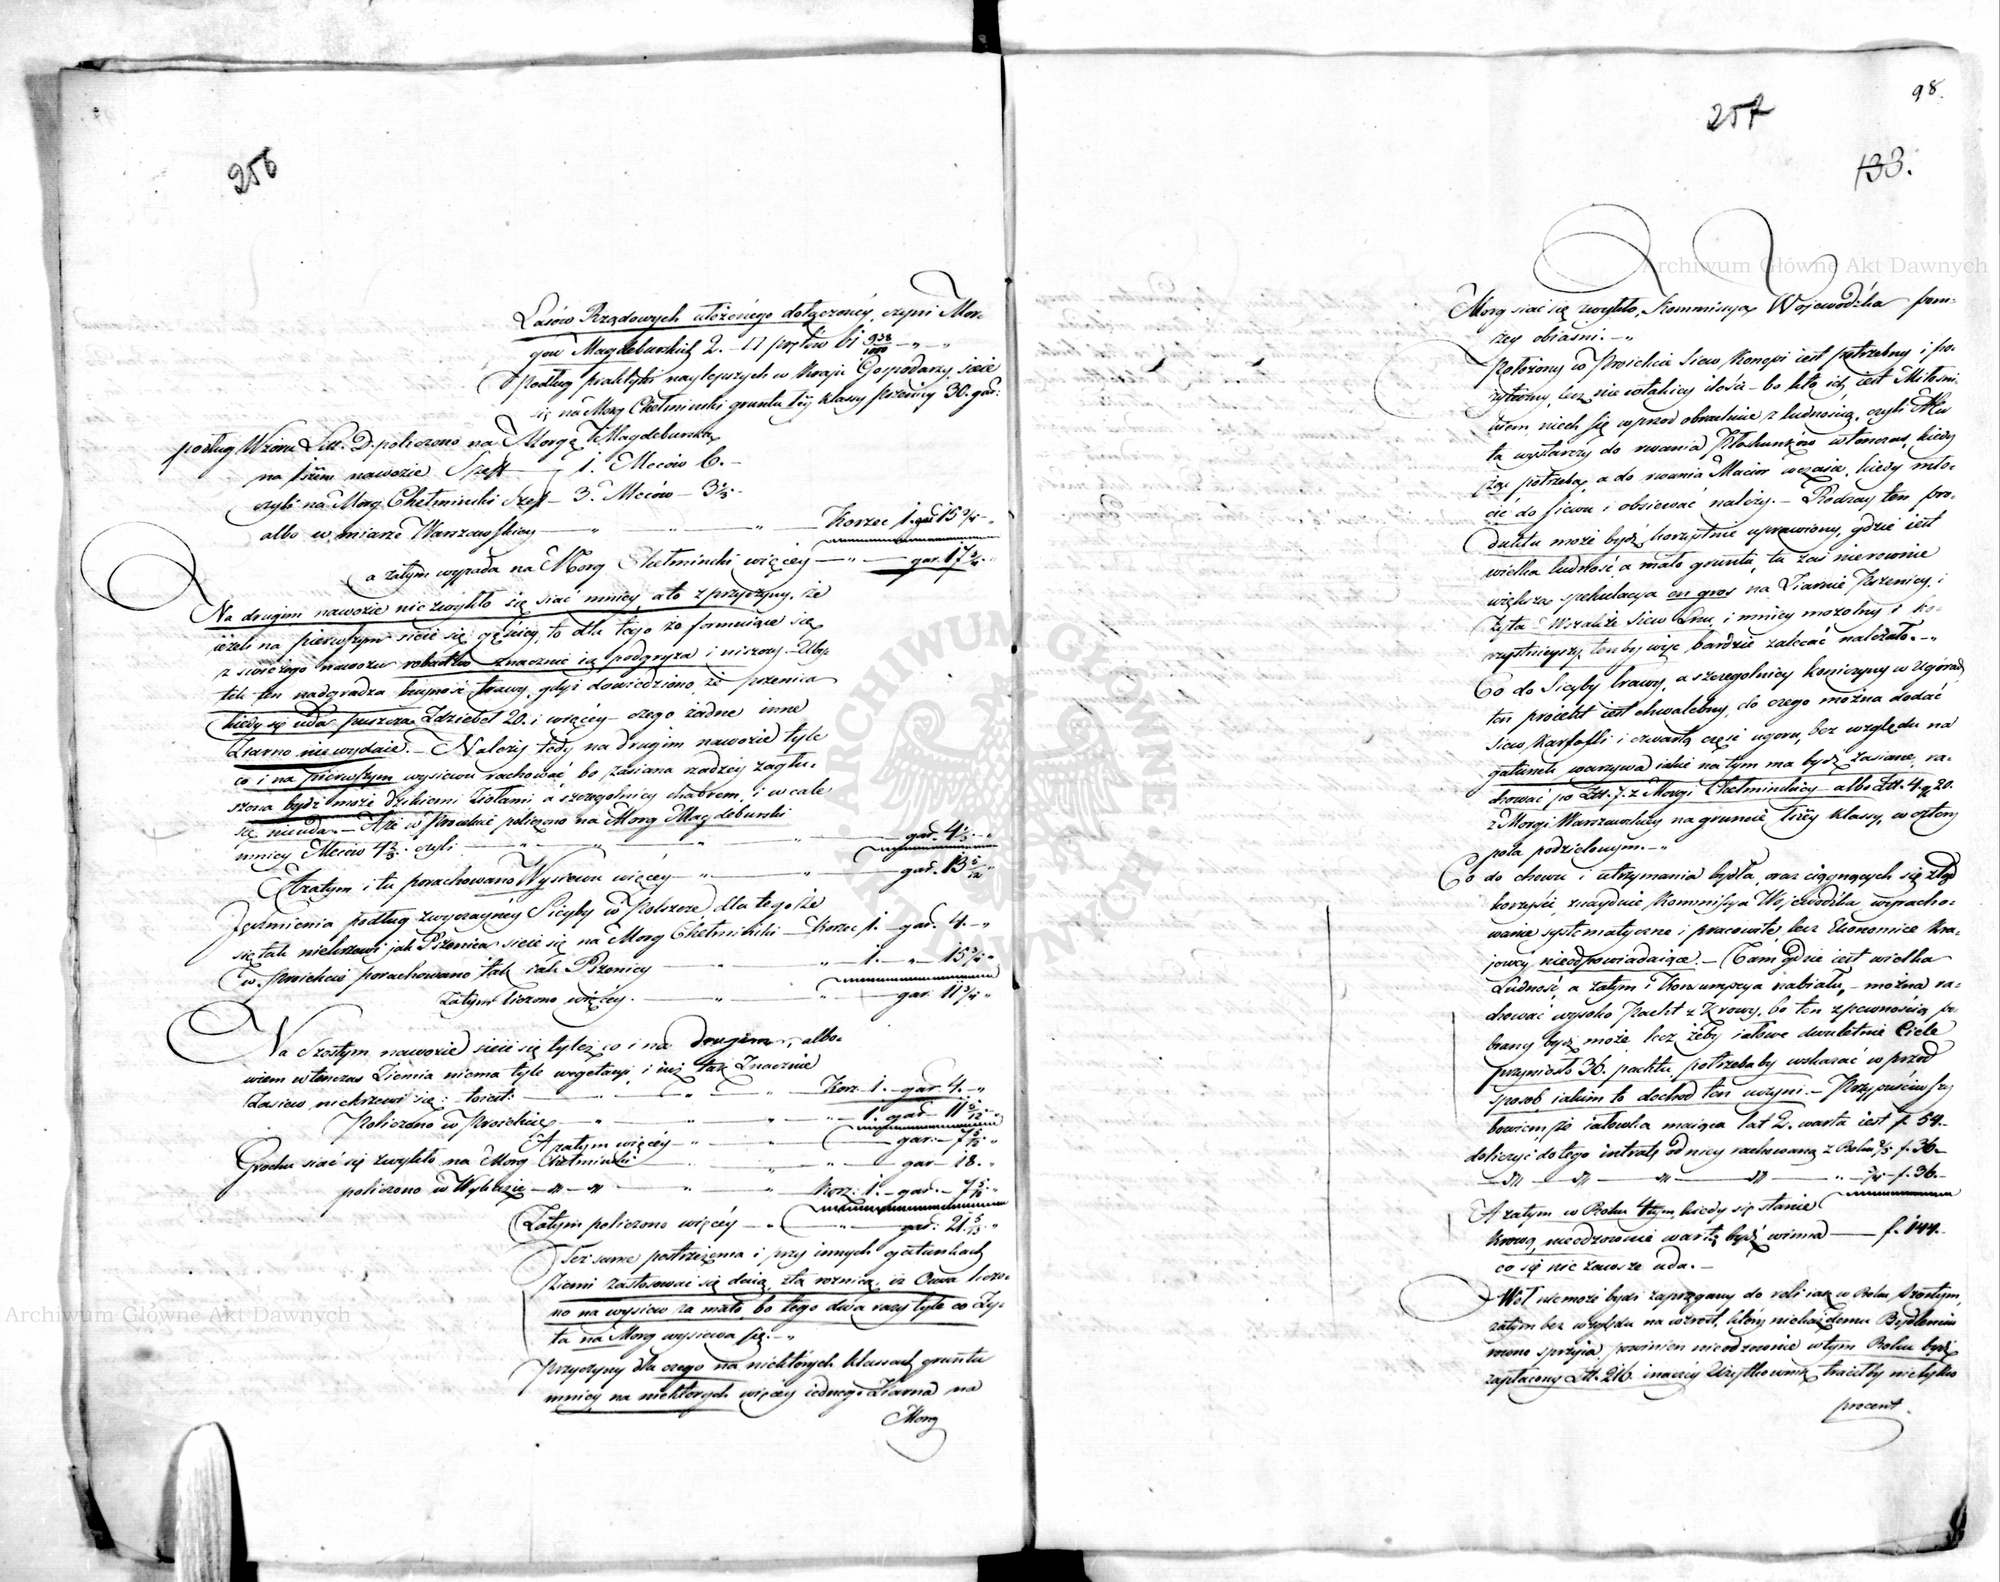 256
Lasów Rządowych ułożonego dołączonéy, czyni Mor-
gów Magdeburskich 2. — 11 prętów 61 938/1000 — „ — „
Podług praktyki naylepszych w Kraju Gospodarzy, sieie
się na Morg Chełminski gruntu téy klassy pszenicy 30. gar:
podług Wzoru Litt. D. policzono na Morgę Magdeburską
na 1szem nawozie Szeff — 1. Meców 6. —
czyli na Morg Chełminski Szeff — 3. Meców — 3
albo w miarze Warszawskiey — „ — „ — „ Korzec 1. gar 15
a zatym wypada na Morg Chełminski więcey — „ — gar. 17
Na drugim nawozie nie zwykło się siać mniey, a to z przyczyny, że
ieżeli na pierwszym sieie się gęściey, to dla tego że formuiące się
z świeżego nawozu robactwo znacznie ią podgryza i niszczy. — Uby-
tek ten nadgradza buyność trawy, gdyż dowiedziono, że pszenica
kiedy się uda puszcza Zdziebeł 20. i więcey — czego żadne inne
Ziarno nie wydaie. — Należy tedy na drugim nawozie tyle
co i na pierwszym wysiewu rachować, bo zasiana rzadziey zagłu-
szona bydź może dzikiemi Ziołami a szczegolniey chabrem, i wcale
się nie uda. — Aże w Proiekcie policzono na Morg Magdeburski
mniey Meców 4 czyli — „ — „ — „ — gar. 4
A zatym i tu porachowano Wysiewu więcey — „ — „ — gar. 13
Jęczmienia podług zwyczayney Sieyby w Polszcze, dla tego że
się tak niekrzewi jak Pszenica sieie się na Morg Chełminski — Korzec 1. gar. 4. — „
w Proiekcie porachowano tak iak Pszenicy — „ — „ 1. — „ — 15
Zatym liczono więcey. — „ — „ — gar. 11
Na Szóstym nawozie sieie się tyleż co i na drugim, albo-
wiem wtenczas Ziemia niema tyle wegetacyi, i iuż tak Znacznie
Zasiew niekrzewi się: toiest: — „ — „ — Korz. 1. — gar. 4. — „
Policzono w Proiekcie — „ — „ — „ 1. gar. — 11
A zatym więcey — „ — „ — gar. — 7
Grochu siać się zwykło na Morg Chełminski — „ — „ — gar. — 18. „
policzono w Wykazie — „ — „ — „ Korz. 1. — gar. — 7
Zatym policzono więcey — „ — „ — gar. 21
Też same postrzeżenia i przy innych gatunkach
Ziemi zastosować się daią, z tą roznicą, iż Owsa liczo-
no na wysiew za mało, bo tego dwa razy tyle co Ży-
ta na Morg wysiewa się. — „
Przyczyny dla czego na niektórych klassach gruntu
mniey na niektorych więcey iednego Ziarna na
Morg
98.
257
133.
Morg siać się zwykło, Kommissya Wojewódzka poni-
żey obiaśni. — „
Położony w Proiekcie Siew Konopi iest potrzebny i po-
żyteczny, lecz nie w takiey ilości — bo kto ich iest Miłośni-
kiem, niech się wprzod obrachuie z ludnością, czyli Mu
ta wystarczy do rwania Płoskunków wtenczas, kiedy
żąć potrzeba, a do rwania Macior wczasie, kiedy młó-
cić do siewu i obsiewać należy. — Rodzay ten pro-
duktu może bydź korzystnie uprawiony, gdzie iest
wielka ludność, a mało gruntu, tu zaś nierownie
większa spekulacya en gros na Ziarnie Pszenicy, i
Żyta. Wszakże Siew Lnu, i mniey mozolny i ko-
rzystnieyszy, tenby więc bardziey zalecać należało. — „
Co do Sieyby trawy, a szczegolniey koniczyny w Ugórach,
ten proiekt iest chwalebny, do czego można dodać
Siew Kartofli i czwartą część ugoru, bez względu na
gatunek warzywa iakie na tym ma bydź zasiane, ra-
chować po Złł. 7. z Morgi Chełminskiey albo Złł. 4. g 20.
z Morgi Warszawskiey na gruncie 1széy klassy, w cztery
pola podzielonym. — „
Co do chowu i utrzymania bydła, oraz ciągnących się ztąd
korzyści, znayduie Kommissya Wojewódzka wyracho-
wanie systematyczne i pracowite, lecz Ekonomice Kra-
jowey nieodpowiadaiące. — Tam gdzie iest wielka
Ludność, a zatym i Konsumpcya nabiału, — można ra-
chować wysoko Pacht z Krowy, bo ten z pewnością po-
brany bydź może, lecz żeby iałowe dwuletnie Ciele
przyniosło 36. pachtu, potrzebaby wskazać wprzód
sposób, iakim to dochod ten uczyni. — Przypuściwszy
bowiem, że iałowka maiąca lat 2. warta iest f. 54. —
doliczyć do tego intratę od niey rachowaną z Roku 2/3 f. 36. —
— „ — „ — „ — „ — „ — 3/4 f. 36. —
A zatym w Roku 4tym, kiedy się stanie
krową, nieodzownie wartą bydź winna — f. 144. —
co się nie zawsze uda. —
Wół niemoże bydź zaprzęgany do roli iak w Roku Szóstym,
zatym bez względu na wzrost, który niekażdemu Bydlęciu
rowno sprzyia, powinien nieodzownie w tym Roku bydź
zapłacony Złł. 216. inaczey Użytkownik traciłby nietylko
procent.
Archiwum Główne Akt Dawnych
Archiwum Główne Akt Dawnych
ARCHIWUM GŁÓWNE AKT DAWNYCH